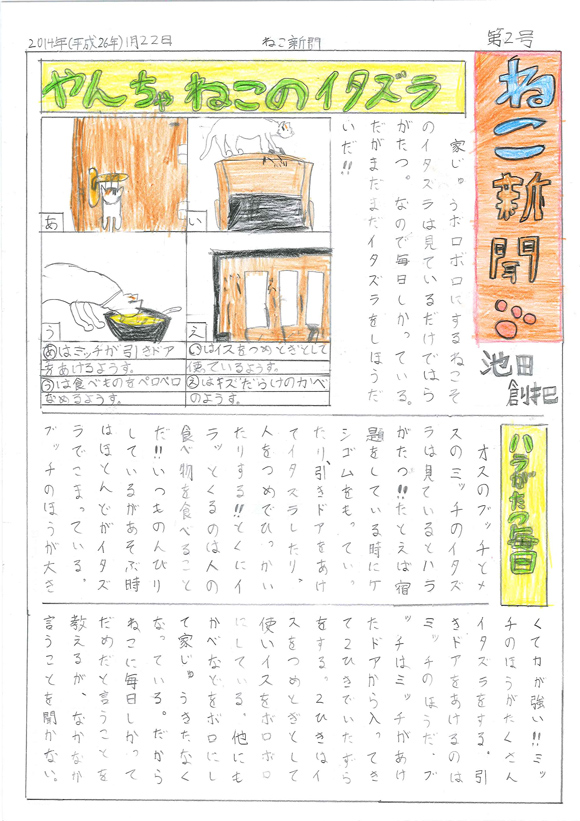 2014年(平成26年)1月22日
ねこ新聞
第2号
ねこ新聞
池田
創把
やんちゃねこのイタズラ
あ
い
う
え
あはミッチが引きドア
をあけるようす。
いはイスをつめとぎとして
使っているようす。
うは食べものをペロペロ
なめるようす。
えはキズだらけのカベ
のようす。
家じゅうボロボロにするねこそ
のイタズラは見ているだけではら
がたつ。なので毎日しかっている。
だがまだまだイタズラをしほうだ
いだ!!
ハラがたつ毎日
オスのブッチとメ
スのミッチのイタズ
ラは見ているとハラ
がたつ!!たとえば宿
題をしている時にケ
シゴムをもってい
たり、引きドアをあけ
てイタズラしたり。
人をつめでひっかい
たりする!!とくにイ
ラッとくるのは人の
食べ物を食べること
だ!!いつものんびり
しているがあそぶ時
はほとんどがイタズ
ラでこまっている。
ブッチのほうが大き
くて力が強い!!ミッ
チのほうがたくさん
イタズラをする。引
きドアをあけるのは
ミッチのほうだ。ブ
ッチはミッチがあけ
たドアから入ってき
て2ひきでいたずら
をする。2ひきはイ
スをつめとぎとして
使いイスをボロボロ
にしている。他にも
かべなどをボロにし
て家じゅうきたなく
なっている。だから
ねこに毎日しかって
だめだと言うことを
教えるが、なかなか
言うことを聞かない。